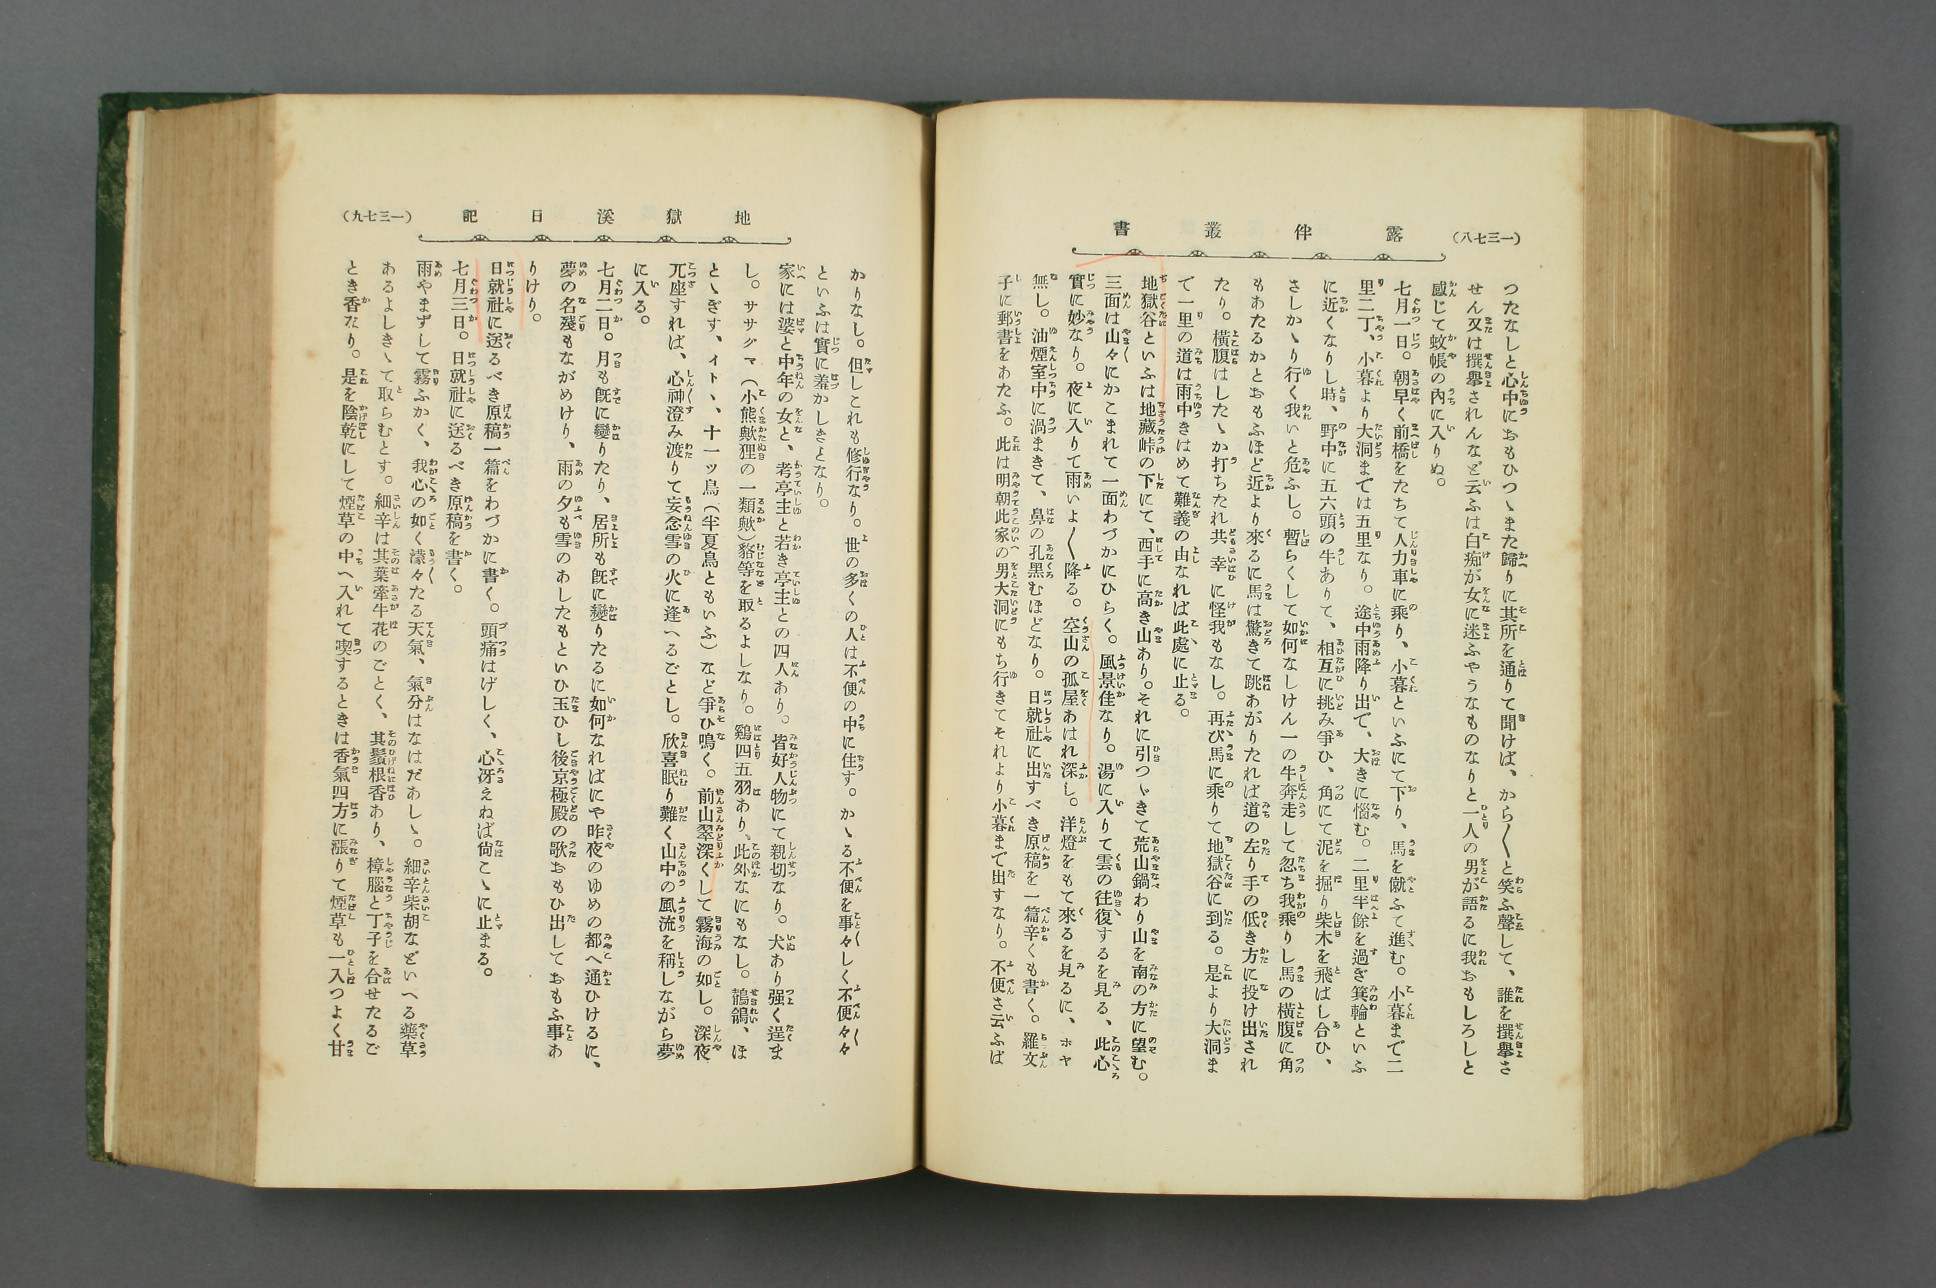 露伴叢書
（一三七八）
つたなしと心中におもひつゝまた歸りに其所を通りて聞けば、から〳〵と笑ふ聲して、誰を撰擧さ
せん又は撰擧されんなど云ふは白痴が女に迷ふやうなものなりと一人の男が語るに我おもしろしと
感じて蚊帳の内に入りぬ。
七月一日。朝早く前橋をたちて人力車に乘り、小暮といふにて下り、馬を僦ふて進む。小暮まで二
里二丁、小暮より大洞までは五里なり。途中雨降り出で、大きに惱む。二里半餘を過ぎ箕輪といふ
に近くなりし時、野中に五六頭の牛ありて、相互に挑み爭ひ、角にて泥を掘り柴木を飛ばし合ひ、
さしかゝり行く我いと危ふし。暫らくして如何なしけん一の牛奔走して忽ち我乘りし馬の橫腹に角
もあたるかとおもふほど近より來るに馬は驚きて跳あがりたれば道の左り手の低き方に投け出され
たり。橫腹はしたゝか打ちたれ共幸に怪我もなし。再び馬に乘りて地獄谷に到る。是より大洞ま
て一里の道は雨中きはめて難義の由なれば此處に止る。
地獄谷といふは地藏峠の下にて、西手に高き山あり。それに引つゞきて荒山鍋わり山を南の方に望む。
三面は山々にかこまれて一面わづかにひらく。風景佳なり。湯に入りて雲の徃復するを見る、此心
實に妙なり。夜に入りて雨いよ〳〵降る。空山の孤屋あはれ深し。洋燈をもて來るを見るに、ホヤ
無し。油煙室中に渦まきて、鼻の孔黑むほどなり。日就社に出すべき原稿を一篇辛くも書く。羅文
子に郵書をあたふ。此は明朝此家の男大洞にもち行きてそれより小暮まで出すなり。不便さ云ふば
地獄溪日記
（一三七九）
かりなし。但しこれも修行なり。世の多くの人は不便の中に住す。かゝる不便を事々しく不便々々
といふは實に羞かしきとなり。
家には婆と中年の女と、考亭主と若き亭主との四人あり。皆好人物にて親切なり。犬あり强く逞ま
し。ササグマ（小熊歟狸の一類歟）貉等を取るよしなり。鷄四五羽あり、此外なにもなし。鶺鴒、ほ
とゝぎす、イトヽ、十一ッ鳥（半夏鳥ともいふ）など爭ひ鳴く。前山翠深くして霧海の如し。深夜
兀座すれば、心神澄み渡りて妄念雪の火に逢へるごとし。欣喜眠り難く山中の風流を稱しながら夢
に入る。
七月二日。月も旣に變りたり、居所も旣に變りたるに如何なればにや昨夜のゆめの都へ通ひけるに、
夢の名殘もながめけり、雨の夕も雪のあしたもといひ玉ひし後京極殿の歌おもひ出しておもふ事あ
りけり。
日就社に送るべき原稿一篇をわづかに書く。頭痛はげしく、心冴えねば尙こゝに止まる。
七月三日。日就社に送るべき原稿を書く。
雨やまずして霧ふかく、我心の如く濛々たる天氣、氣分はなはだあしゝ。細辛柴胡などいへる藥草
あるよしきゝて取らむとす。細辛は其葉牽牛花のごとく、其鬚根香あり、樟腦と丁子を合せたるご
とき香なり。是を陰乾にして煙草の中へ入れて喫するときは香氣四方に漲りて煙草も一入つよく甘